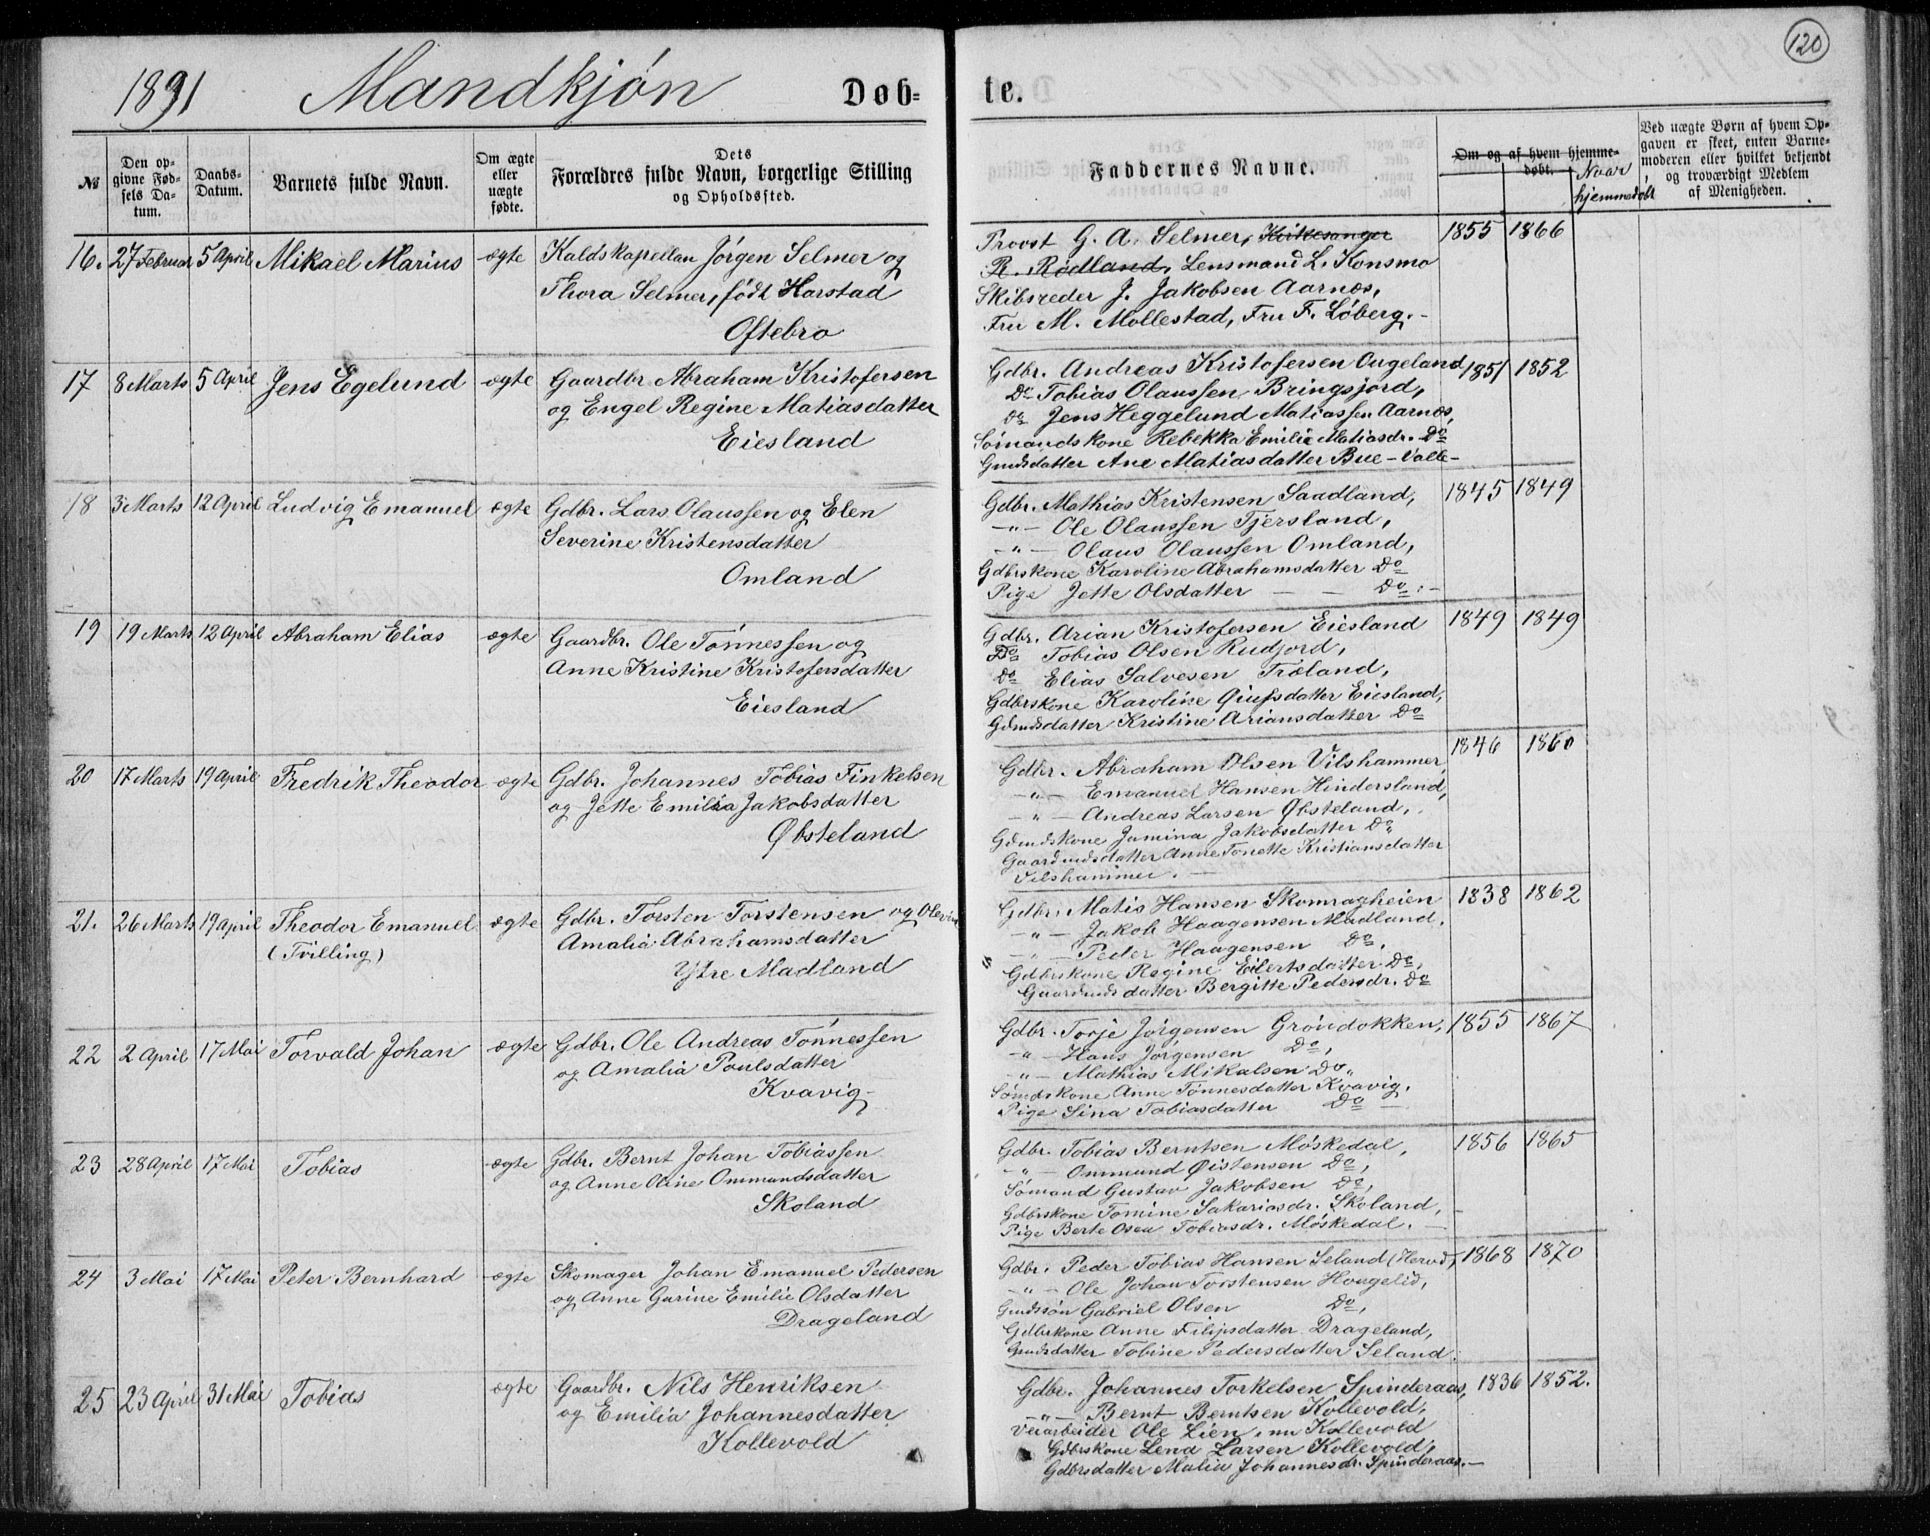 120
1891 Mandkjøn Døb- te.
№
Den opgivne Fødsels Datum.
Daabs-Datum.
Barnets fulde Navn.
Om ægte eller uægte fødte.
Dets Forældres fulde Navn, borgerlige Stilling og Opholdssted.
Faddernes Navne.
Om og af hvem hjemmedøbt.
Naar hjemmedøbt
Ved uægte Børn af hvem Opgaven er skeet, enten Barnemoderen eller hvilket bekjendt og troværdigt Medlem af Menigheden.
16. 27 Februar 5 April Mikael Marius ægte Kaldskapellan Jörgen Selmer og
Thora Selmer, født Harstad
Oftebro
Provst G. A. Selmer, Kirkesanger 1855 1866
R. Rødland, Lensmand L. Konsmo
Skibsreder J. Jakobsen Aarnæs,
Fru M. Mollestad, Fru F. Løberg.-
17 8 Marts 5 April Jens Egelund ægte Gaardbr. Abraham Kristofersen
og Engel Regine Matiasdatter
Eiesland
Gdbr. Andreas Kristofersen Ougeland 1851 1852
Do Tobias Olaussen Bringsjord,
do Jens Heggelund Matiassen Aarnæs,
Sømandskone Rebekka Emilie Matiasdr. Do
Gmdsdatter Ane Matiasdatter Bue-Valle-
18 3 Marts 12 April Ludvig Emanuel ægte Gdbr. Lars Olaussen og Elen
Severine Kristensdatter
Omland
Gdbr. Mathias Kristensen Saadland, 1845 1849
-"- Ole Olaussen Tjersland,
-"- Olaus Olaussen Omland,
Gdbrskone Karoline Abrahamsdatter Do
Pige Jette Olsdatter - - Do.-
19 19 Marts 12 April Abraham Elias ægte Gaardbr. Ole Tönnessen og
Anne Kristine Kristofersdatter
Eiesland
Gdbr. Arian Kristofersen Eiesland 1849 1849
Do Tobias Olsen Rudjord,
Do Elias Salvesen Træland,
Gdbrskone Karoline Giufsdatter Eiesland,
Gdmdsdatter Kristine Ariansdatter Do
20 17 Marts 19 April Fredrik Theodor ægte Gdbr. Johannes Tobias Finkelsen
og Jette Emilia Jakobsdatter
Øbsteland
Gdbr. Abraham Olsen Vilshammer, 1846 1860
-"- Emanuel Hansen Hindersland,
-"- Andreas Larsen Øbsteland,
Gdmdskone Jamina Jakobsdatter Do,
Gaardmdsdatter Anne Tonette Kristiansdatter
Vilshammer.-
21. 26 Marts 19 April Theodor Emanuel ægte Gdbr. Torsten Torstensen og Olevine
(Tvilling) Amalia Abrahamsdatter
Ytre Madland
Gdbr. Matis Hansen Skomragheien 1838 1862
-"- Jakob Haagensen Madland,
-"- Peder Haagensen Do,
Gdbrskone Regine Eilertsdatter Do,
Gaardmdsdatter Bergitte Pedersdr. Do
22 2 April 17 Mai Torvald Johan ægte Gdbr. Ole Andreas Tönnessen
og Amalia Poulsdatter
Kvavig-
Gdbr. Torje Jörgensen Gröndokken, 1855 1867
-"- Hans Jørgensen Do,
-"- Mathias Mikalsen Do,
Sømdskone Anne Tønnesdatter Kvavig,
Pige Sina Tobiasdatter Do -
23 28 April 17 Mai Tobias ægte Gdbr. Bernt Johan Tobiassen
og Anne Oline Ommundsdatter
Skoland
Gdbr. Tobias Berntsen Möskedal, 1856 1865
-"- Ommund Øistensen Do,
Sømand Gustav Jakobsen Do,
Gdbrskone Tomine Sakariasdr. Skoland,
Pige Berte Osea Tobiasdr. Möskedal.-
24 3 Mai 17 Mai Peter Bernhard ægte Skomager Johan Emanuel Pedersen
og Anne Gurine Emilie Olsdatter
Drageland
Gdbr. Peder Tobias Hansen Seland (Herod), 1868 1870
-"- Ole Johan Torstensen Hougelid,
Gmdssøn Gabriel Olsen Do,
Gdbrskone Anne Filipsdatter Drageland,
Gmdsdatter Tobine Pedersdatter Seland.
25 23 April 31 Mai Tobias ægte Gaardbr. Nils Henriksen
og Emilia Johannesdatter
Kollevold
Gdbr. Johannes Torkelsen Spinderaas, 1836 1852.
-"- Bernt Berntsen Kollevold,
Veiarbeider Ole Lien, nu Kollevold
Gdbrskone Lena Larsen Kollevold,
Gdbrsdatter Malia Johannesdr. Spinderaas.-